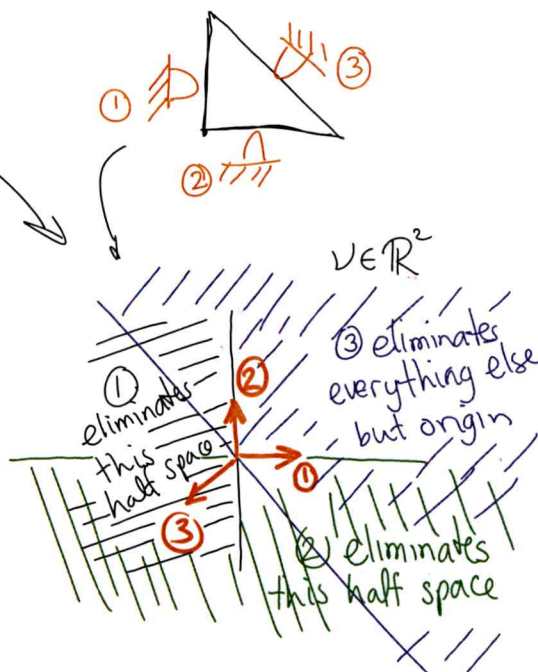 ①
③
②
ν∈ℝ²
③ eliminates
everything else
but origin
①
eliminates
this
half space
②
①
③
② eliminates
this half space